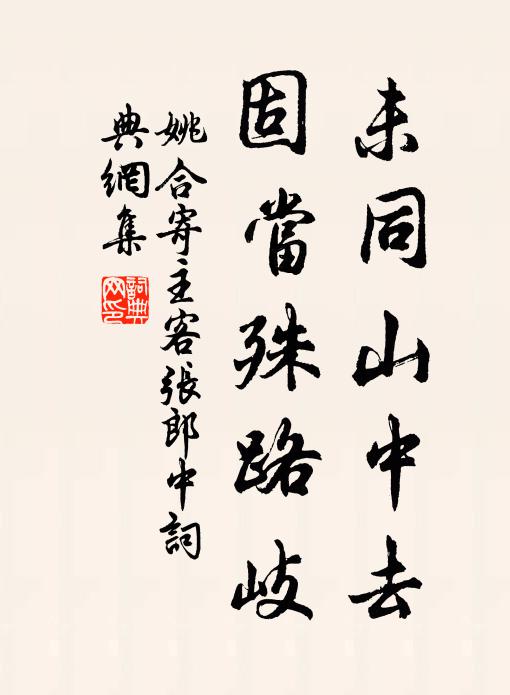 未同山中去
固當殊路岐
姚合寄主客張郎中詞
典網集
詞典
网印